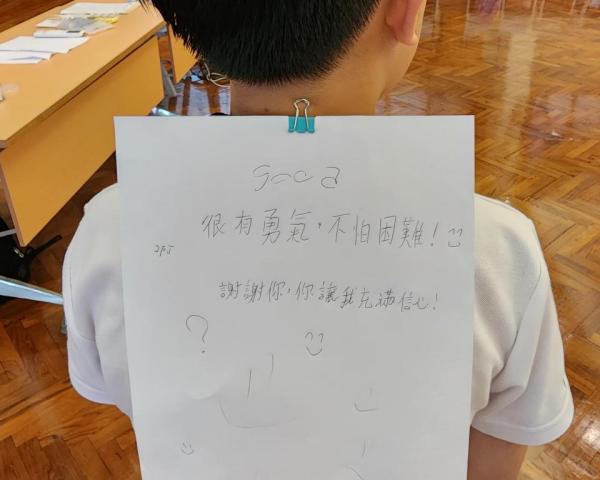 good
很有勇氣,不怕困難!
謝謝你,你讓我充滿信心!
?